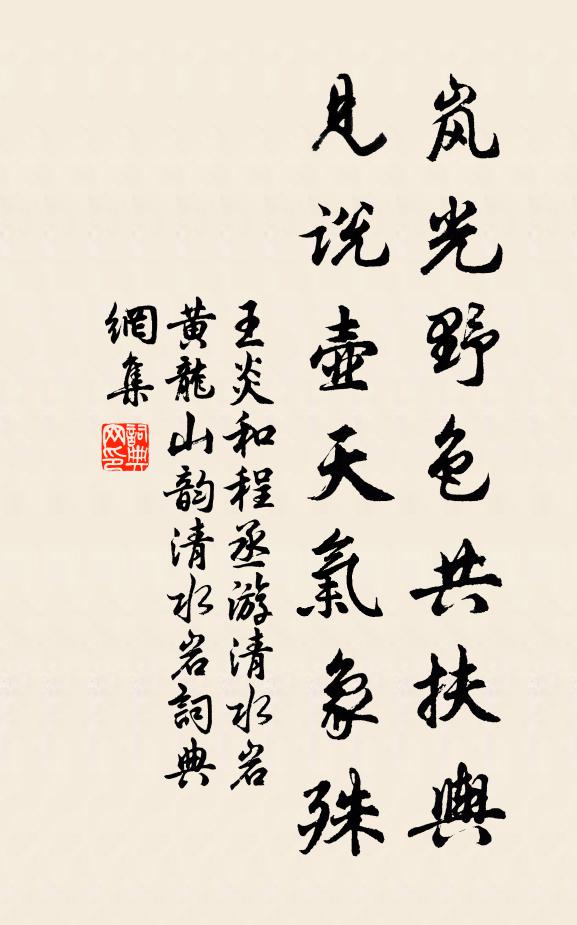 岚光野色共扶舆
见说壶天气象殊
王炎和程丞游清水岩
黄龍山韵清水岩詞典
網集
詞典
网印